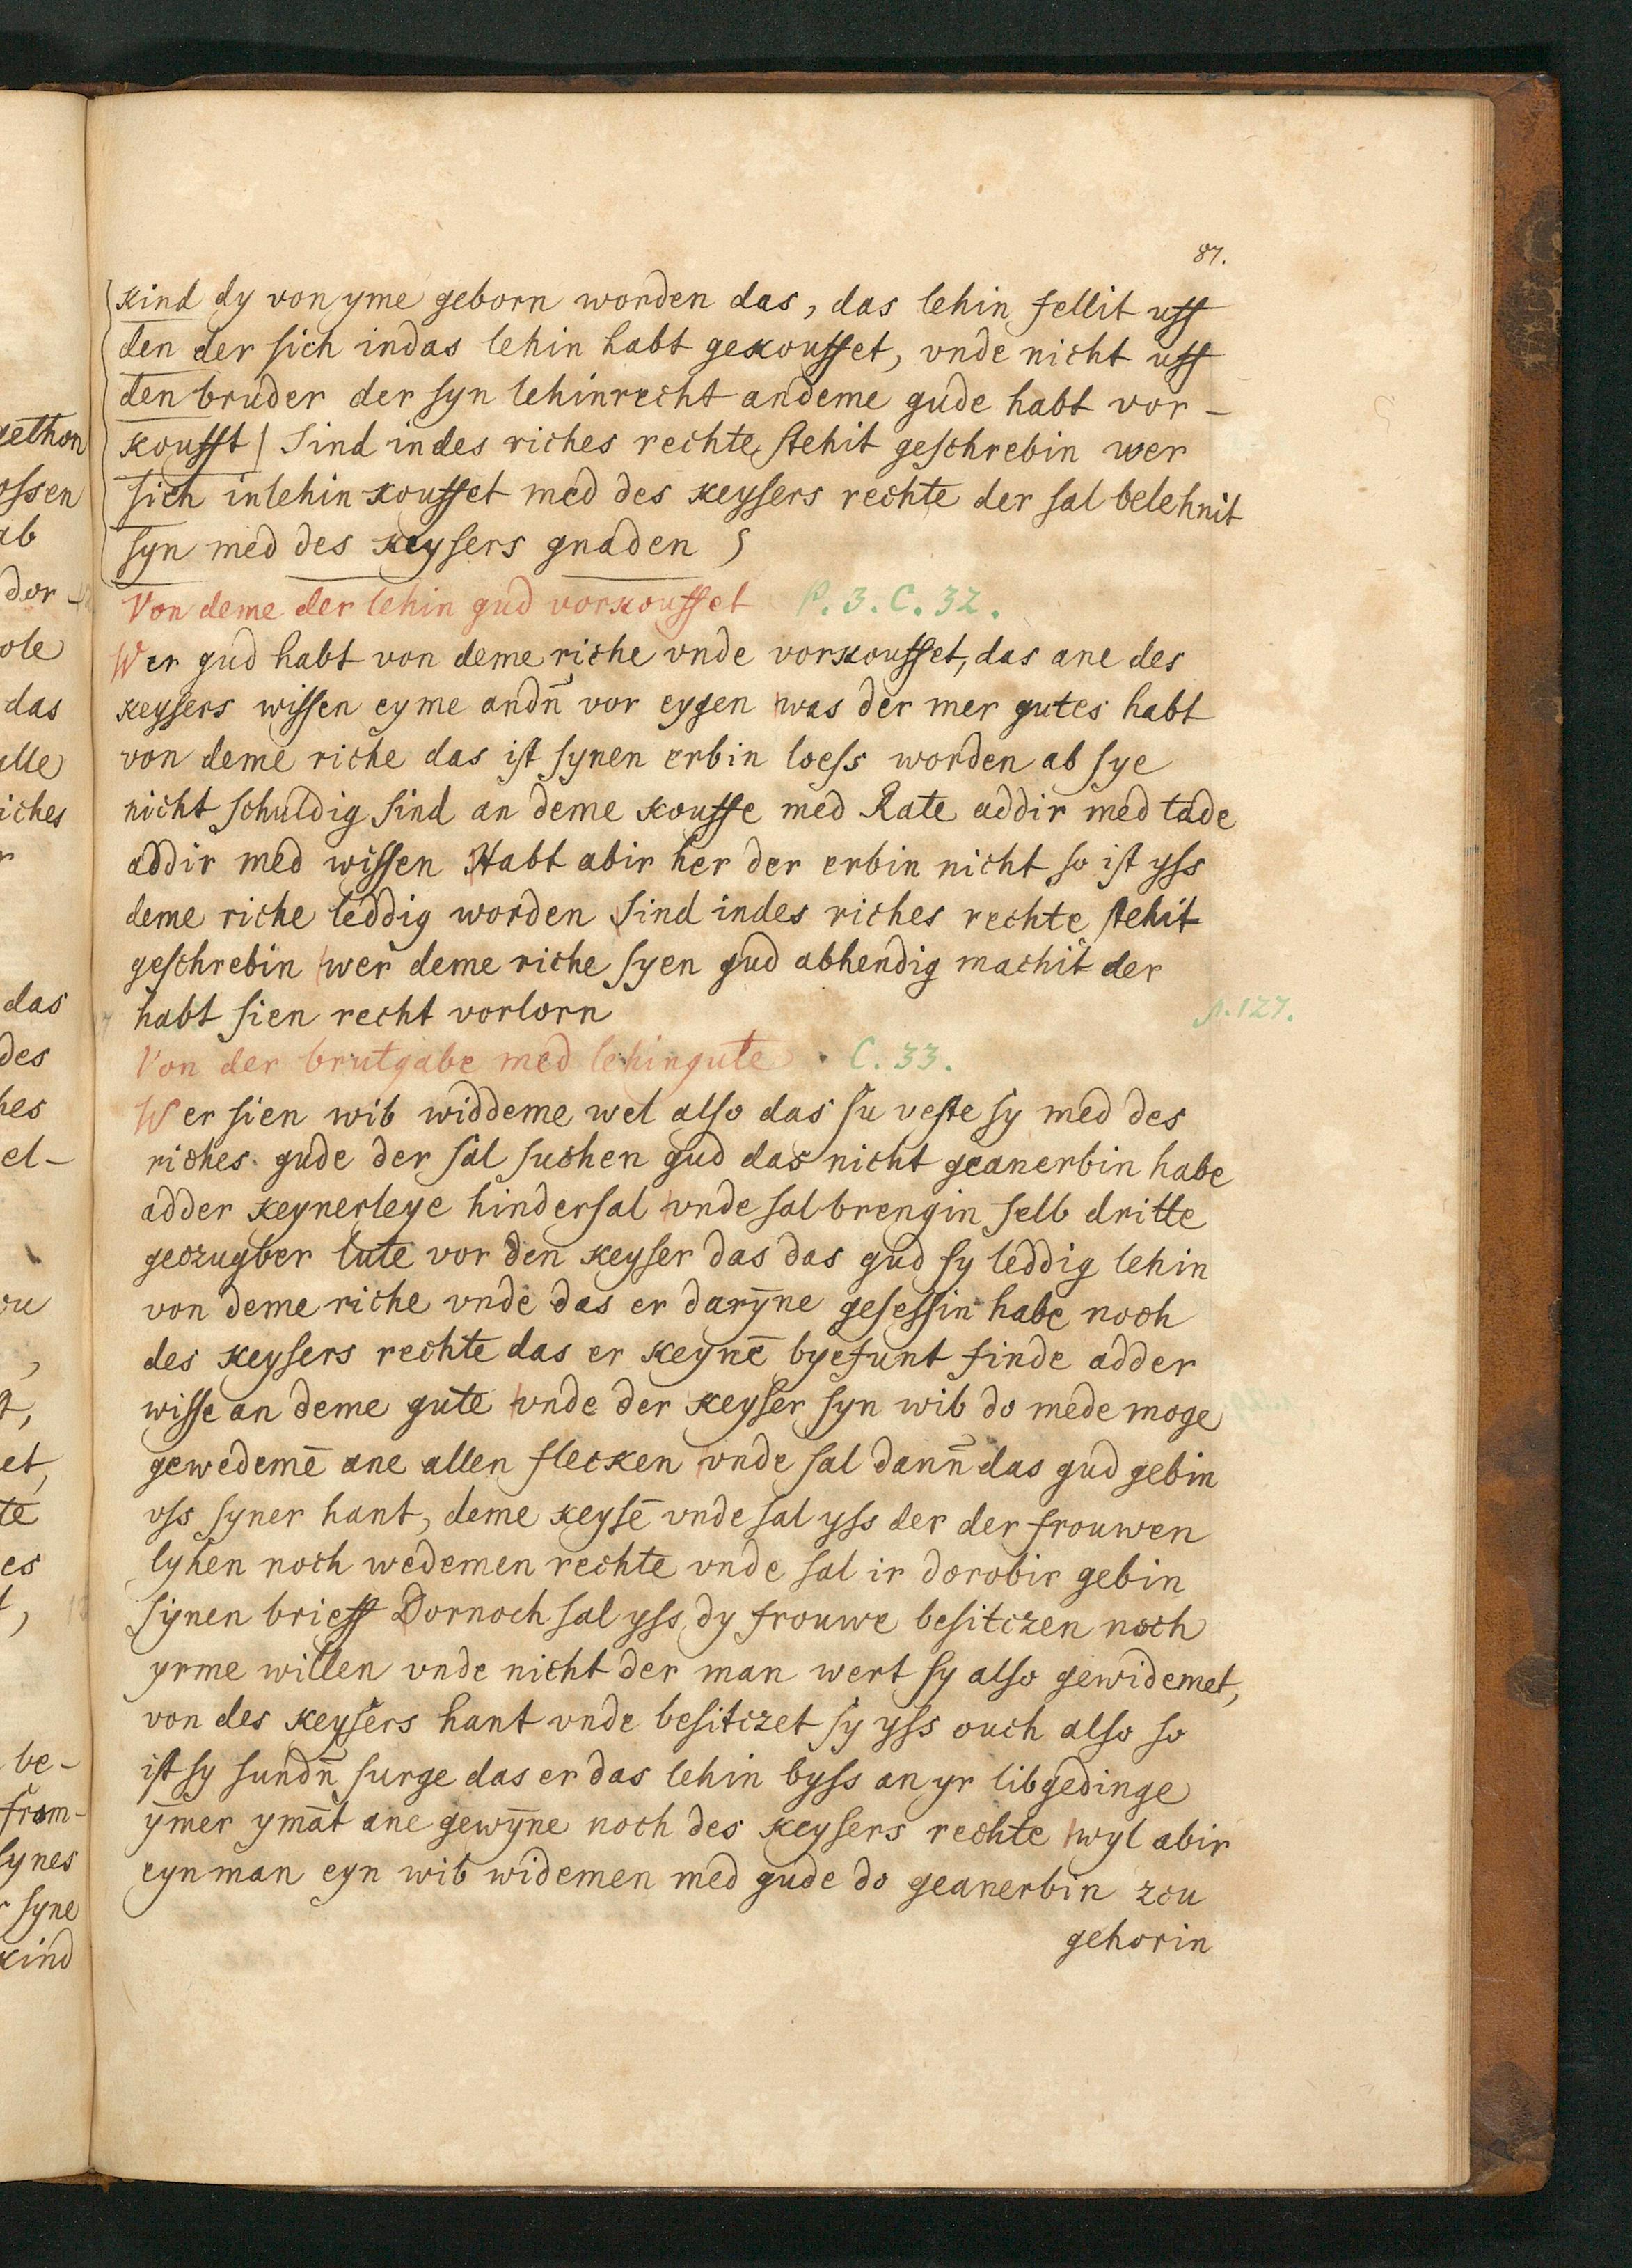 87.
kind dy von yme geborn worden das, das lehin fellit uff
den der sich indas lehin habt gekouffet, vnde nicht uff
den bruder der syn lehinrecht andeme gude habt vor-
koufft | Sind indes riches rechte stehit geschrebin wer
sich inlehin kouffet med des keysers rechte der sal belehnit
syn med des keysers gnaden
Von deme der lehin gud vorkouffet P. 3. C. 32.
Wer gud habt von deme riche vnde vorkouffet, das ane des
keysers wissen eyme andn̄ vor eygen was der mer gutes habt
von deme riche das ist synen erbin loess worden ab sye
nicht schuldig sind an deme kouffe med Rate addir med tade
addir med wissen Habt abir her der erbin nicht so ist yss
deme riche leddig worden Sind indes riches rechte stehit
geschrebin wer deme riche syen gud abhendig machit der
habt sien recht vorlorn
p. 127.
Von der brutgabe med lehingute C. 33.
Wer sien wib widdeme wel also das su veste sy med des
riches gude der sal suchen gud das nicht geanerbin habe
adder keynerleye hindersal vnde sal brengin selb dritte
geczugber lute vor den keyser das das gud sy leddig lehin
von deme riche vnde das er darȳne gesessin habe noch
des keysers rechte das er keynē byefunt finde adder
wisse an deme gute vnde der keyser syn wib do mede moge
gewedemē ane allen flecken vnde sal dann̄ das gud gebin
vss syner hant, deme keysē vnde sal yss der der frouwen
lyhen noch wedemen rechte vnde sal ir dorobir gebin
synen brieff Dornoch sal yss dy frouwe besitczen noch
yrme willen vnde nicht der man wert sy also gewidemet,
von des keysers hant vnde besitczet sy yss ouch also so
ist sy sundn̄ surge das er das lehin byss an yr libgedinge
ȳmer ymāt ane gewȳne noch des keysers rechte wyl abir
eyn man eyn wib widemen med gude do geanerbin zcu
gehorin